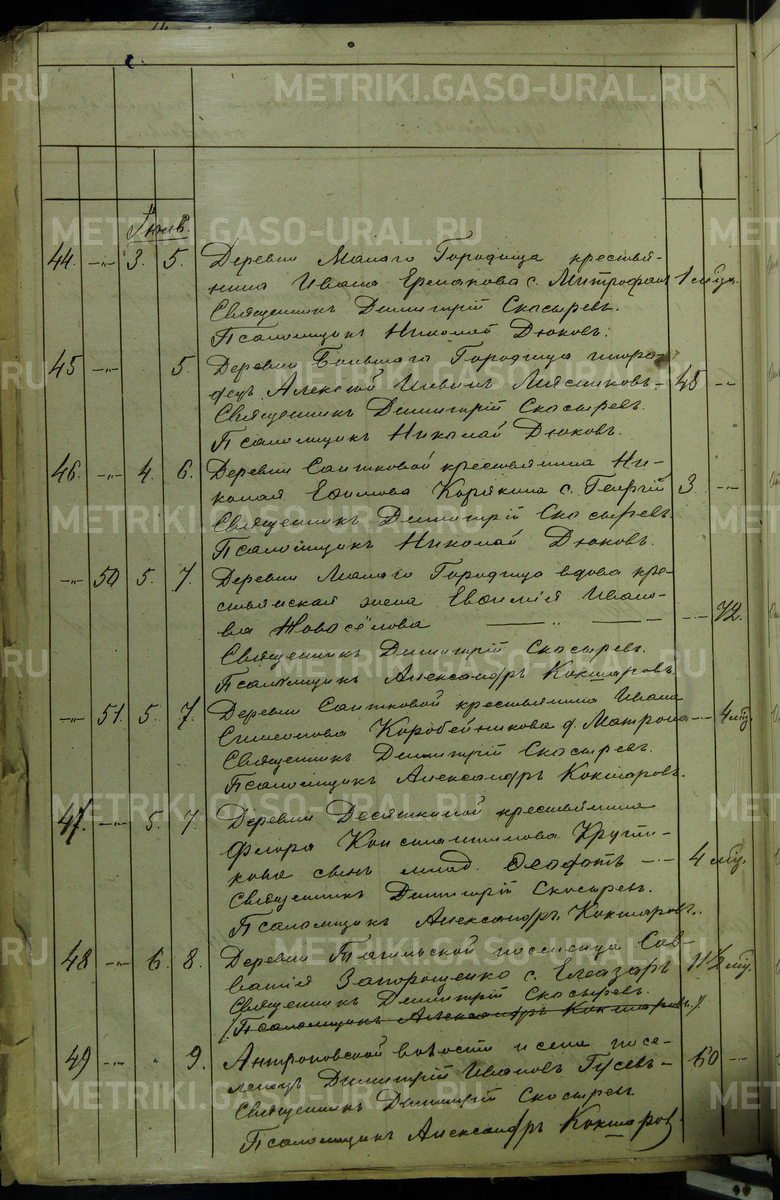 METRIKI.GASO-URAL.RU
Янв.
44. -„- 3. 5. Деревни Малаго Городища крестья-
нина Ивана Ермакова с. Митрофанъ 1 мѣц.
Священникъ Димитрій Скосыревъ.
Псаломщикъ Николай Дюковъ.
45 -„- 5. Деревни Большаго Городища
Алексѣй 45 -„-
Священникъ Димитрій Скосыревъ.
Псаломщикъ Николай Дюковъ.
46. -„- 4. 6. Деревни Саитковой крестьянина Ни-
колая Ефимова Корякина с. Георгій 3 -„-
Священникъ Димитрій Скосыревъ.
Псаломщикъ Николай Дюковъ.
-„- 50 5. 7. Деревни Малаго Городища вдова кре-
стьянская жена Евфимія Ивано-
ва Новосёлова -„- 72.
Священникъ Димитрій Скосыревъ.
Псаломщикъ Александръ Кокшаровъ.
-„- 51. 5. 7. Деревни Саитковой крестьянина Ивана
Симеонова Коробейникова д. Матрона -„- 4 мѣц.
Священникъ Димитрій Скосыревъ.
Псаломщикъ Александръ Кокшаровъ.
47. -„- 5. 7. Деревни Десяткиной крестьянина
Флора Константинова Крути-
кова сынъ млад. Ѳеофотъ -„- 4 мѣц.
Священникъ Димитрій Скосыревъ.
Псаломщикъ Александръ Кокшаровъ.
48 -„- 6. 8. Деревни Тагильской поселенца Сав-
ватія Запорощенко с. Елеазаръ 11½ мѣц.
Священникъ Димитрій Скосыревъ.
(Псаломщикъ Александръ Кокшаровъ.)
49 -„- „ 9. Антроповской волости и села посе-
ленецъ Димитрій Ивановъ Гусевъ - 60 -„-
Священникъ Димитрій Скосыревъ.
Псаломщикъ Александръ Кокшаровъ